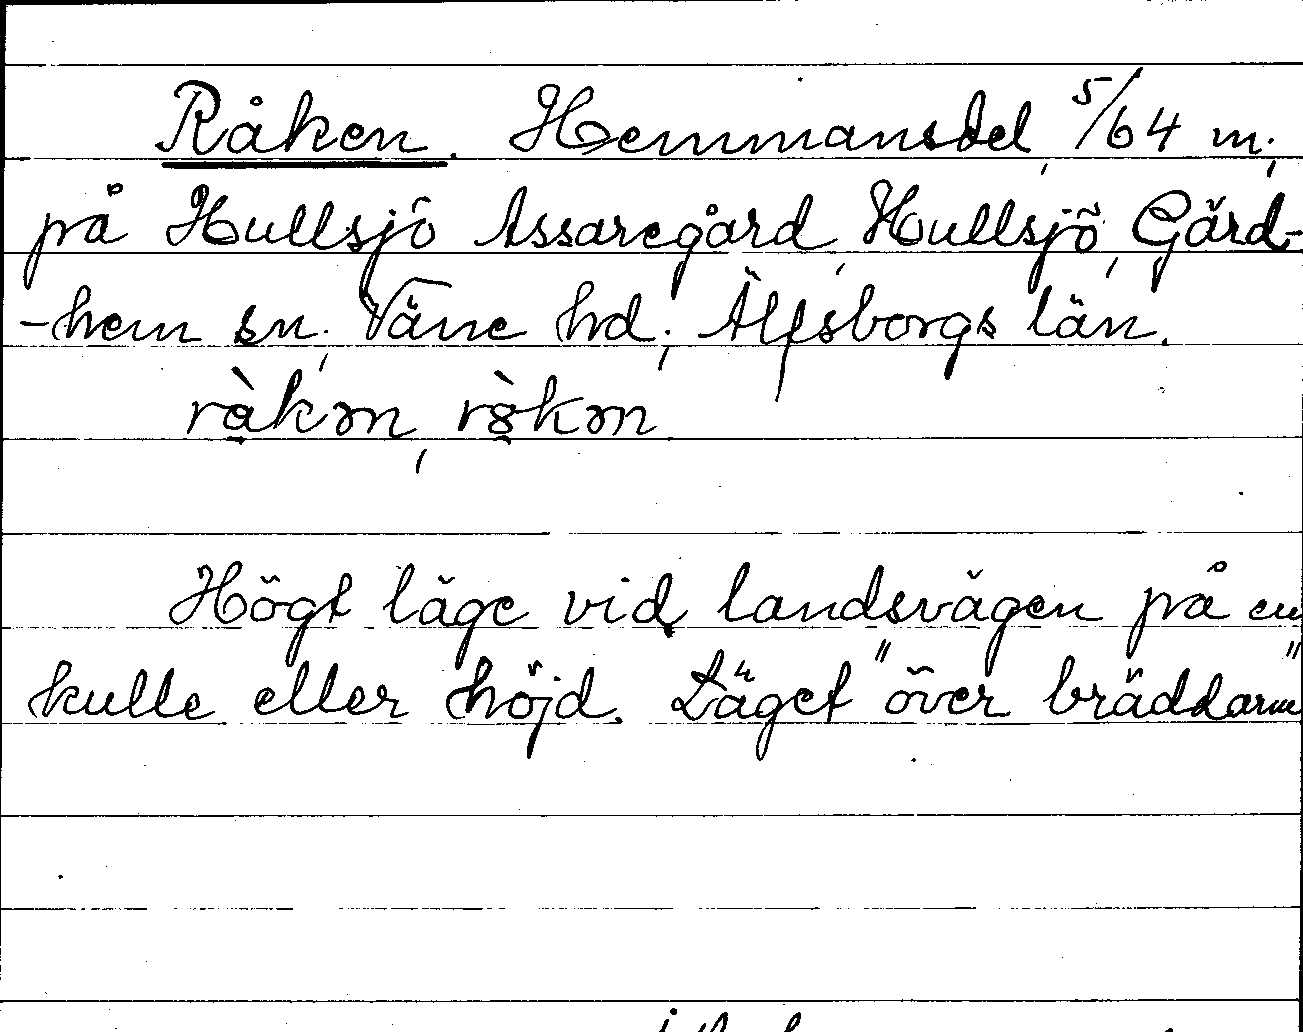 Råken. Hemmansdel, 5/64 m;
på Hullsjö Assaregård, Hullsjö, Gärd-
-hem sn; Väne hd; Älfsborgs län.
ràkən, ròkən
Högt läge vid landsvägen på en
kulle eller höjd. Läget "över bräddarne"